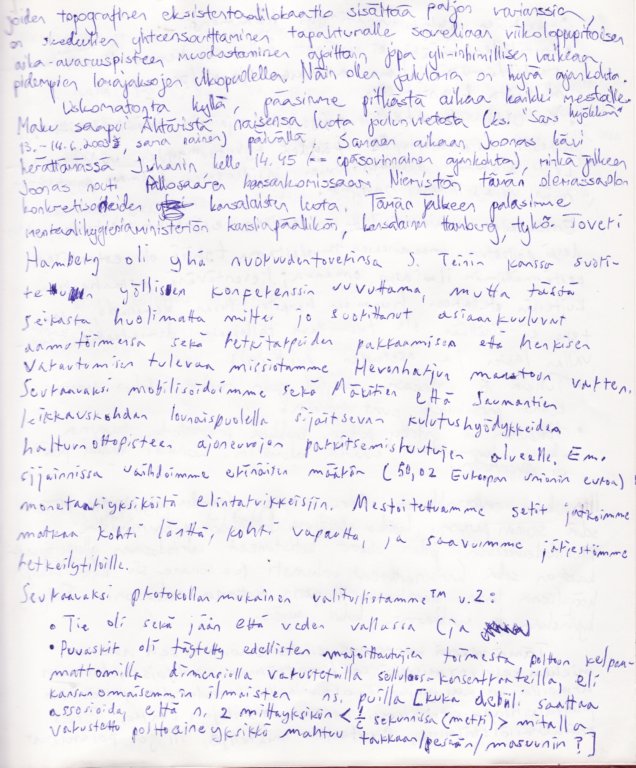 joiden topografinen eksistentiaalilokaatio sisältää paljon varianssia,
on suedulien yhteensovittaminen tapahtumalle soveliaan viikoloppupitoisen
aika-avaruuspisteen muodostaminen ajoittain jopa yli-inhimillisen vaikeaa
pidempien lomajaksojen ulkopuolella. Näin ollen joululoma on hyvä ajankohta.
Uskomatonta kyllä, pääsimme pitkästä aikaa kaikki mestalle.
Maku saapui Ähtäristä naisensa luota joulun vietosta (ks. "Saris hyökkää"
13.-14.6.2003, sama nainen) päivällä. Samaan aikaan Joonas kävi
herättämässä Juhanin kello 14.45 (== epäsovinnainen ajankohta), minkä jälkeen
Joonas nouti Pallosaaren kansankomissaari Niemistön tämän olemassaolon
konkretisoineiden kansalaisten luota. Tämän jälkeen palasimme
mentaalihygieniaministeriön kansliapäällikön, kansalainen Hamberg, tykö. Toveri
Hamberg oli yhä nuoruudentoverinsa S. Teinin kanssa suori-
tetun yöllisen konpetenssin uuvuttama, mutta tästä
seikasta huolimatta miltei jo suorittanut asiaankuuluvat
aamutoimensa sekä retkitarpeiden pakkaamisen että henkisen
varautumisen tulevaa missiotamme Hevonharjun maastoon varten.
Seuraavaksi mobilisoidoimme sekä Mäkitien että Saumantien
leikkauskohdan lounaispuolella sijaitsevan kulutushyödykkeiden
haltuunottopisteen ajoneuvojen parkitsemisruutujen alueelle. Em.
sijainnissa vaihdoimme eräinäisen määrän (50,02 Euroopan unionin euroa)
monetaariyksiköitä elintarvikkeisiin. Mestoitettuamme setit jatkoimme
matkaa kohti länttä, kohti vapautta, ja saavuimme järjestömme
retkeilytiloille.
Seuraavaksi protokollan mukainen valituslistamme™ v.2:
• Tie oli sekä jään että veden vallassa (ja
• Puuvaskit oli täytetty edellisten majoittautujien toimesta polttoon kelpaa-
mattomilla dimensiolla varustetuilla selluloosa-konsentraateilla, eli
kansanomaisemmin ilmaisten ns. puilla [kuka debiili saattaa
assosioida, että n. 2 mittayksikön < 1/c sekunnissa (metri) > mitalla
varustettu polttoaineyksikkö mahtuu takkaan/pesään/masuuniin?]